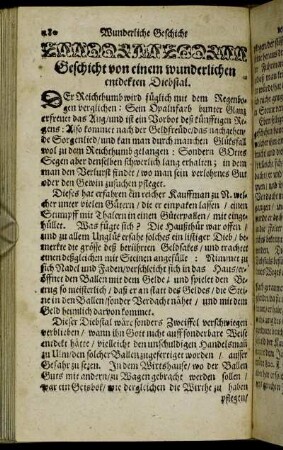 Wunderliche Geschicht
Geschicht von einem wunderlichen
entdekten Diebstal.
DEr Reichthumb wird füglich mit dem Regenbo-
gen verglichen: Sein Opalsfarb bunter Glanz
erfreuet das Aug/ und ist ein Vorbot deß künfftigen Re-
gens: Also kommet nach der Geldfreude/ das nachgehen-
de Sorgenlied/ und kan man durch manchen Glücksfall
wol zu dem Reichthumb gelangen: Sondern GOttes
Segen aber denselben schwerlich lang erhalten; in dem
man den Verlurst findet/ wo man sein verlohrnes Gut
oder den Gewin zusuchen pfleget.
Dieses hat erfahren ein reicher Kauffman zu N. wel-
cher unter vielen Gütern/ die er einpaken lassen/ einen
Strumpff mit Thalern in einen Güterpallen/ mit einge-
hüllet. Was fügt sich? Die Hausthür war offen/
und zu allem Unglük ersahe solches ein listiger Dieb/ be-
merkte die grösse deß berührten Geldsakes/ und machte
einen deßgleichen mit Steinen angefüllt: Nimmet zu
sich Nadel und Faden/ verschleicht sich in das Haus/ er-
öffnet den Ballen mit dem Gelde/ und spielet den Be-
trug so meisterlich/ daß er an statt des Geldes/ die Stei-
ne in den Ballen/ sonder Verdacht nähet/ und mit dem
Geld heimlich darvon kommet.
Dieser Diebstal wäre sonders Zweiffel verschwiegen
verblieben/ wann ihn Gott nicht auff sonderbare Weis
entdekt hätte/ vielleicht den unschuldigen Handelsman
zu Ulm/ den solcher Ballen zugefertiget worden/ ausser
Gefahr zu setzen. In dem Wirtshause/ wo der Ballen
Guts mit andern/ zu Wagen gebracht werden sollen/
war ein Geisbok/ wie dergleichen die Wirthe zu haben
pflegen/